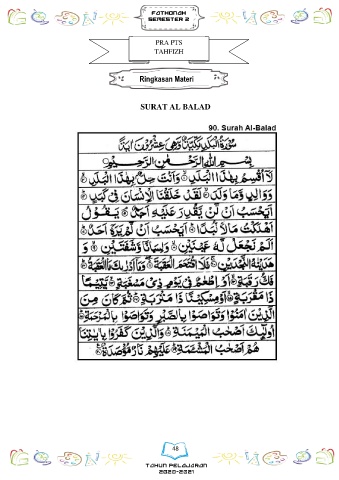 FATHONAH
SEMESTER 2
PRA PTS
TAHFIZH
Ringkasan Materi
SURAT AL BALAD
90. Surah Al-Balad
سُوْرَةُ الْبَلَدِ مَكِّيَّةٌ وَهِيَ عِشْرُوْنَ اٰيَةً
بِسْمِ اللّٰهِ الرَّحْمٰنِ الرَّحِيْمِ
لَآ اُقْسِمُ بِهٰذَا الْبَلَدِ ۙ وَاَنْتَ حِلٌّۢ بِهٰذَا الْبَلَدِ ۙ
وَوَالِدٍ وَّمَا وَلَدَ ۙ لَقَدْ خَلَقْنَا الْاِنْسَانَ فِيْ كَبَدٍ ۗ
اَيَحْسَبُ اَنْ لَّنْ يَّقْدِرَ عَلَيْهِ اَحَدٌ ۘ يَقُوْلُ
اَهْلَكْتُ مَالًا لُّبَدًا ۗ اَيَحْسَبُ اَنْ لَّمْ يَرَهٗٓ اَحَدٌ ۗ
اَلَمْ نَجْعَلْ لَّهٗ عَيْنَيْنِ ۙ وَلِسَانًا وَّشَفَتَيْنِ ۙ وَ
هَدَيْنٰهُ النَّجْدَيْنِ ۚ فَلَا اقْتَحَمَ الْعَقَبَةَ ۖ وَمَآ اَدْرٰىكَ مَا الْعَقَبَةُ ۗ
فَكُّ رَقَبَةٍ ۙ اَوْ اِطْعَامٌ فِيْ يَوْمٍ ذِيْ مَسْغَبَةٍ ۙ يَّتِيْمًا
ذَا مَقْرَبَةٍ ۙ اَوْ مِسْكِيْنًا ذَا مَتْرَبَةٍ ۗ ثُمَّ كَانَ مِنَ
الَّذِيْنَ اٰمَنُوْا وَتَوَاصَوْا بِالصَّبْرِ وَتَوَاصَوْا بِالْمَرْحَمَةِ ۗ
اُولٰۤىِٕكَ اَصْحٰبُ الْمَيْمَنَةِ ۗ وَالَّذِيْنَ كَفَرُوْا بِاٰيٰتِنَا
هُمْ اَصْحٰبُ الْمَشْـَٔمَةِ ۗ عَلَيْهِمْ نَارٌ مُّؤْصَدَةٌ
48
TAHUN PELAJARAN
2020-2021